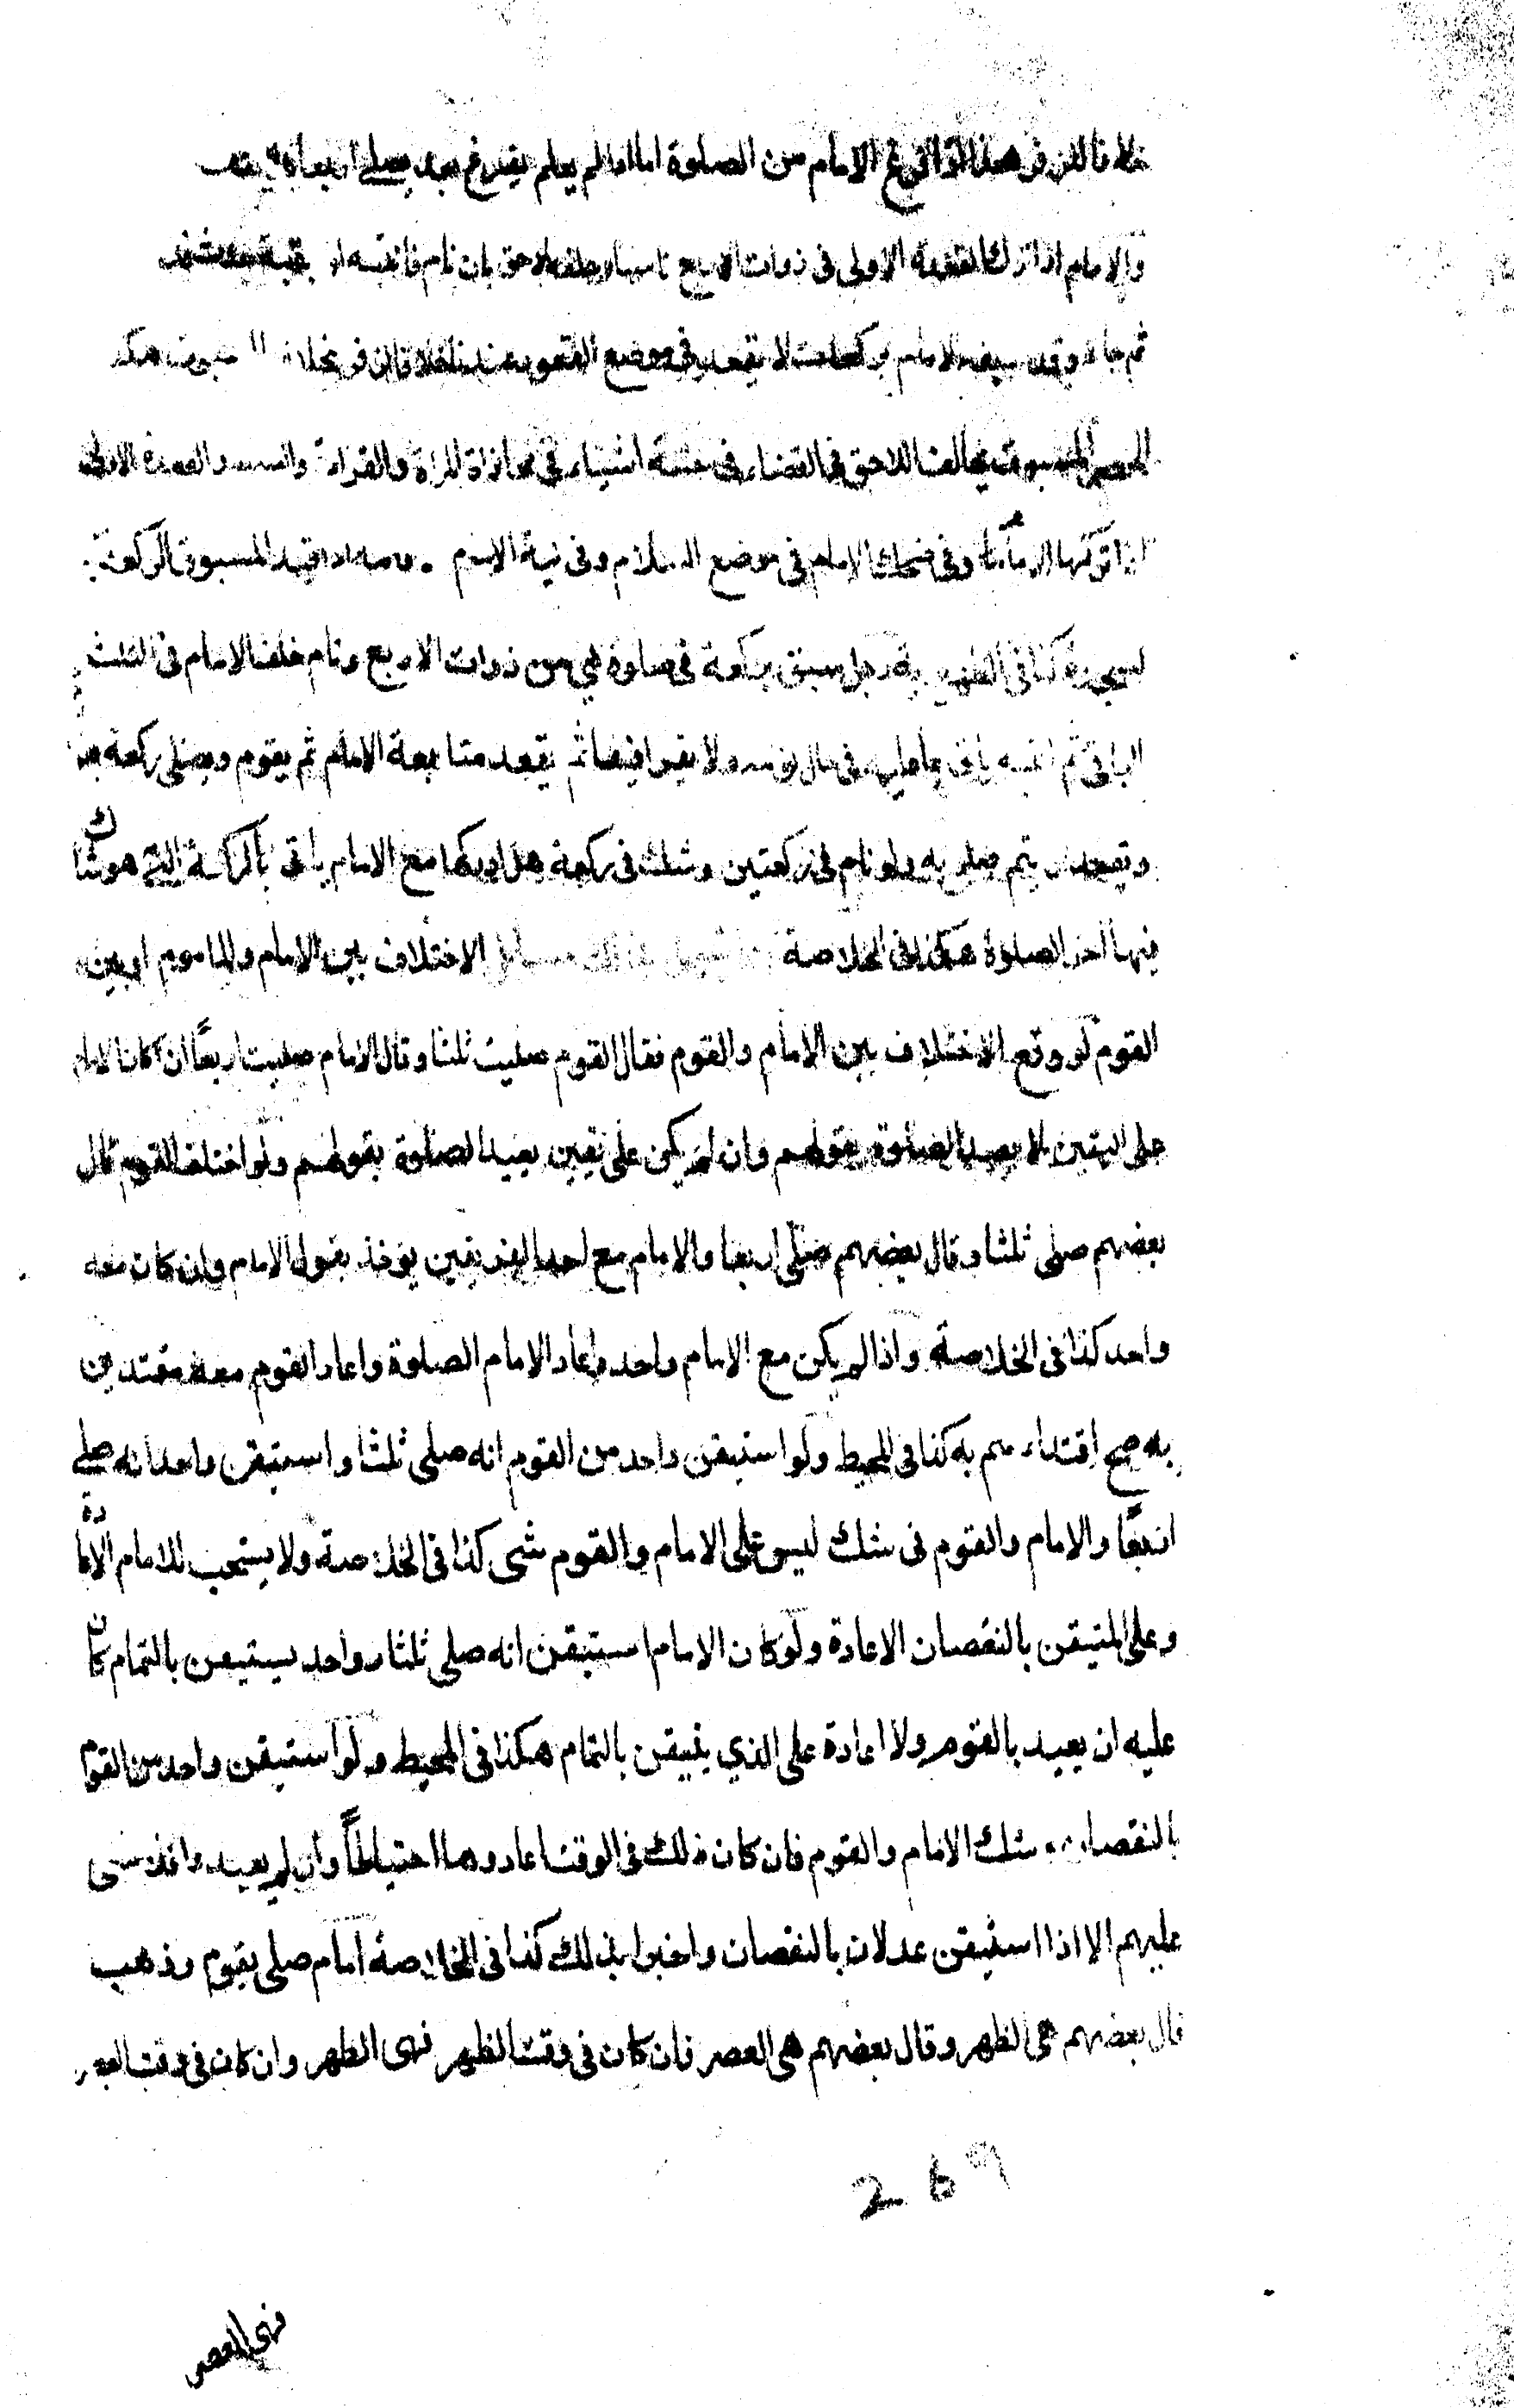 خلافا لزفر هذا اذا فرغ الامام من الصلوة اما اذا لم يعلم يفرغ
والامام اذا ترك القعدة الاولى فى ذوات الاربع ناسيا وخلفه لاحق بان نام فانتبه
ثم جاء وقد سبقه الامام بركعات لا يقعد فى موضع القعود عندنا خلافا لزفر
المسبوق يخالف اللاحق فى القضاء فى ستة اشياء فى محاذاة المراة والقراءة والسهو والقعدة الاولى
اذا تركها الامام وفى ضحك الامام فى موضع السلام وفى نية الاقامة اذا قيد المسبوق الركعة
بسجدة كذا فى الظهيرية رجل سبق بركعة فى صلوة هى من ذوات الاربع ونام خلف الامام فى الثلث
البواقى ثم انتبه ياتى بما عليه فى حال نومه ولا يقرا فيها ثم يقعد متابعة الامام ثم يقوم ويصلى ركعة
ويقعد ويتم صلوته ولو نام فى ركعتين وشك فى ركعة هل ادركها مع الامام ياتى بالركعة التى هو شاك
فيها اخر الصلوة هكذا فى الخلاصة مسائل الاختلاف بين الامام والماموم او بين
القوم لو وقع الاختلاف بين الامام والقوم فقال القوم صليت ثلثا وقال الامام صليت اربعًا ان كان الامام
على اليقين لا يعيد الصلوة بقولهم وان لم يكن على يقين يعيد الصلوة بقولهم ولو اختلف القوم قال
بعضهم صلى ثلثا وقال بعضهم صلى اربعا والامام مع احد الفريقين يؤخذ بقول الامام وان كان معه
واحد كذا فى الخلاصة واذا لم يكن مع الامام واحد واعاد الامام الصلوة واعاد القوم معه مقتدين
به صح اقتداءهم به كذا فى المحيط ولو استيقن واحد من القوم انه صلى ثلثا واستيقن واحد انه صلى
اربعًا والامام والقوم فى شك ليس على الامام والقوم شى كذا فى الخلاصة ولا يستحب للامام الاعادة
وعلى المتيقن بالنقصان الاعادة ولو كان الامام استيقن انه صلى ثلثا وواحد يستيقن بالتمام كان
عليه ان يعيد بالقوم ولا اعادة على الذي يتيقن بالتمام هكذا فى المحيط ولو استيقن واحد من القوم
بالنقصان وشك الامام والقوم فان كان ذلك فى الوقت اعادوها احتياطًا وان لم يعيدوا فلا شى
عليهم الا اذا استيقن عدلان بالنقصان واخبرا بذلك كذا فى الخلاصة امام صلى بقوم وذهب
قال بعضهم هى الظهر وقال بعضهم هى العصر فان كان فى وقت الظهر فهى الظهر وان كان فى وقت العصر
269
فهى العصر